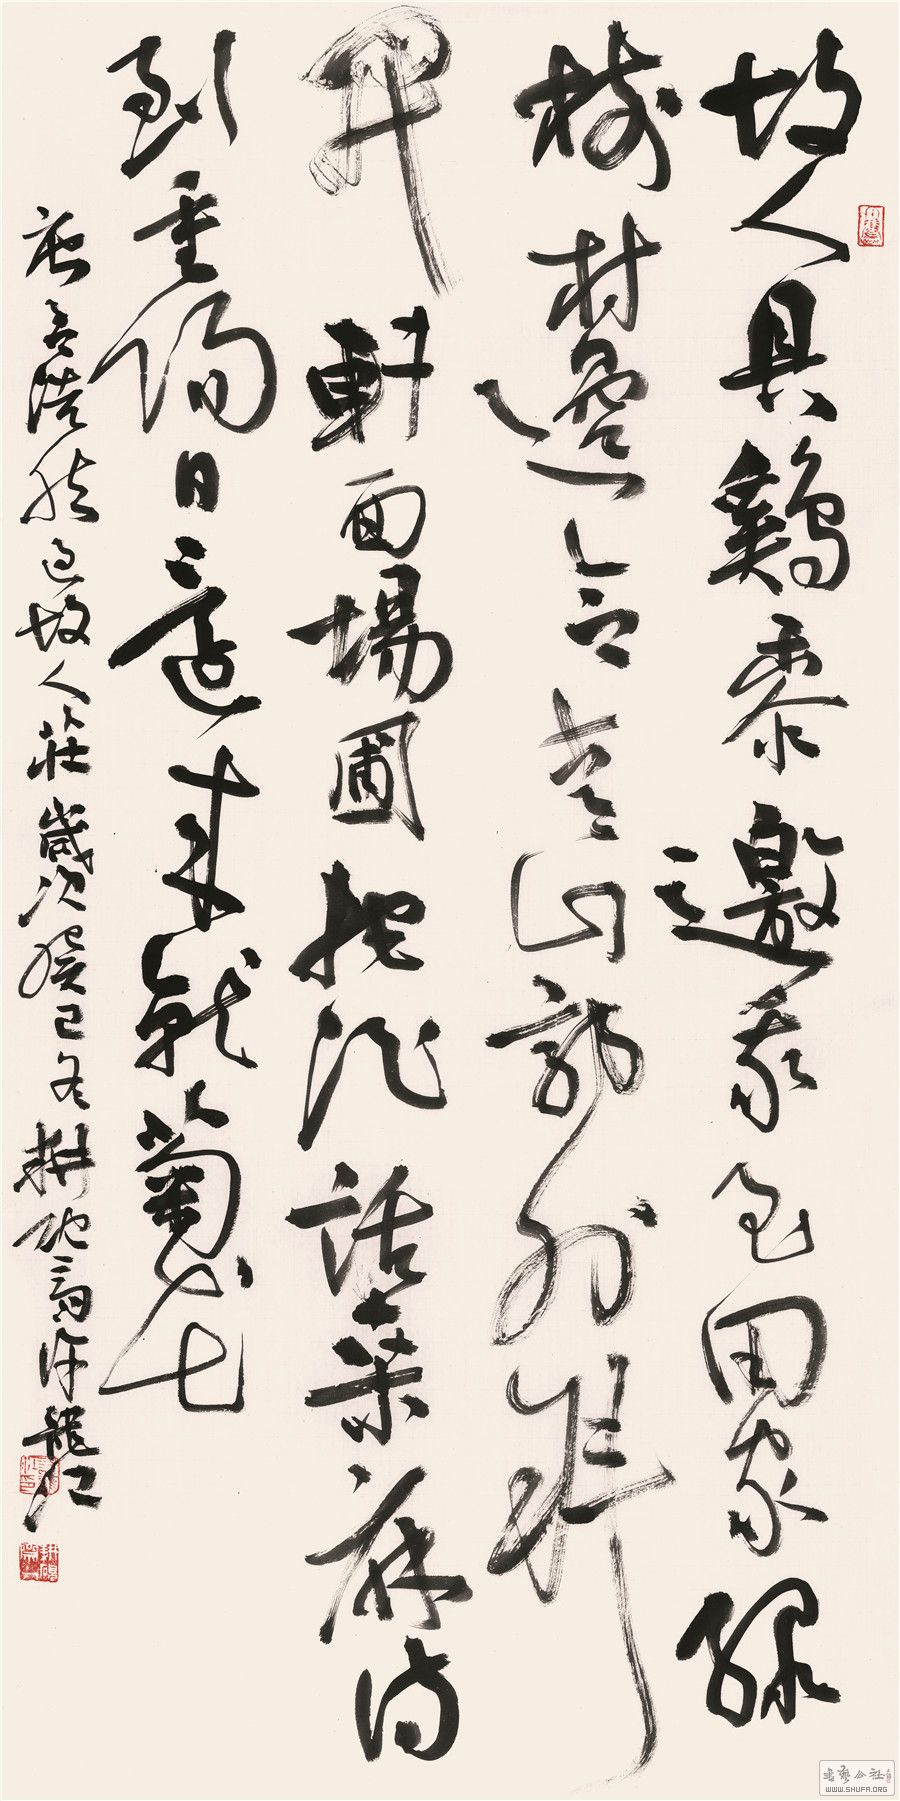 故人具鷄黍邀我至田家緑
樹村邊合青山郭外斜
開軒面場圃把酒話桑麻待
到重陽日還來就菊花
唐孟浩然過故人莊歲次癸巳冬耕硯齋許龍江
書藝公社
WWW.SHUFA.ORG